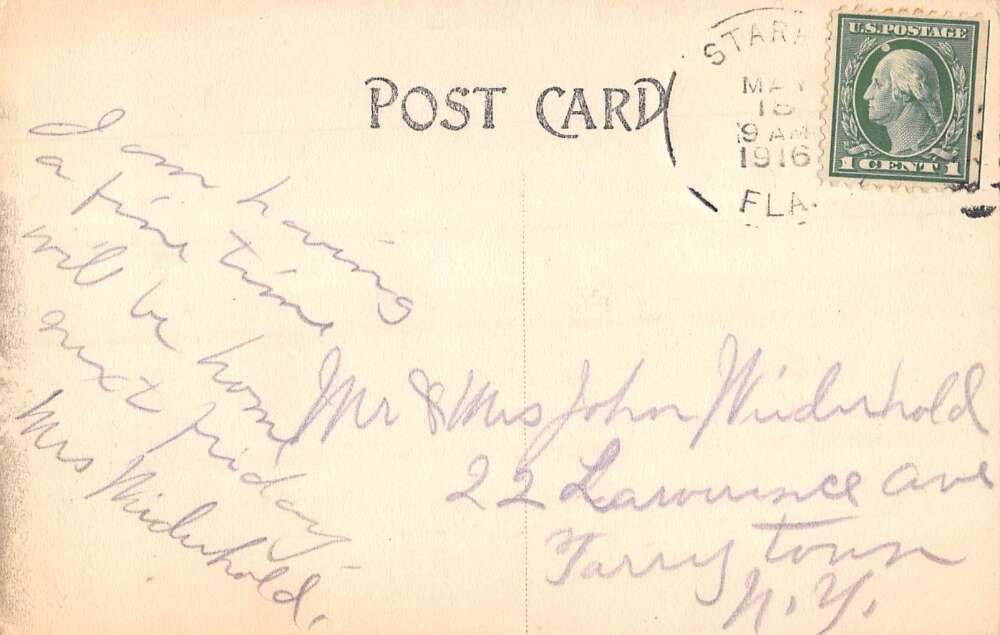 POST CARD
STAR
MAY
15
9 AM
1916
FLA.
U.S. POSTAGE
1 CENT 1
I am having
a fine time
will be home
next friday.
Mrs Widerhold.
Mr & Mrs John Widerhold
22 Lawrence Ave
Tarrytown
N.Y.